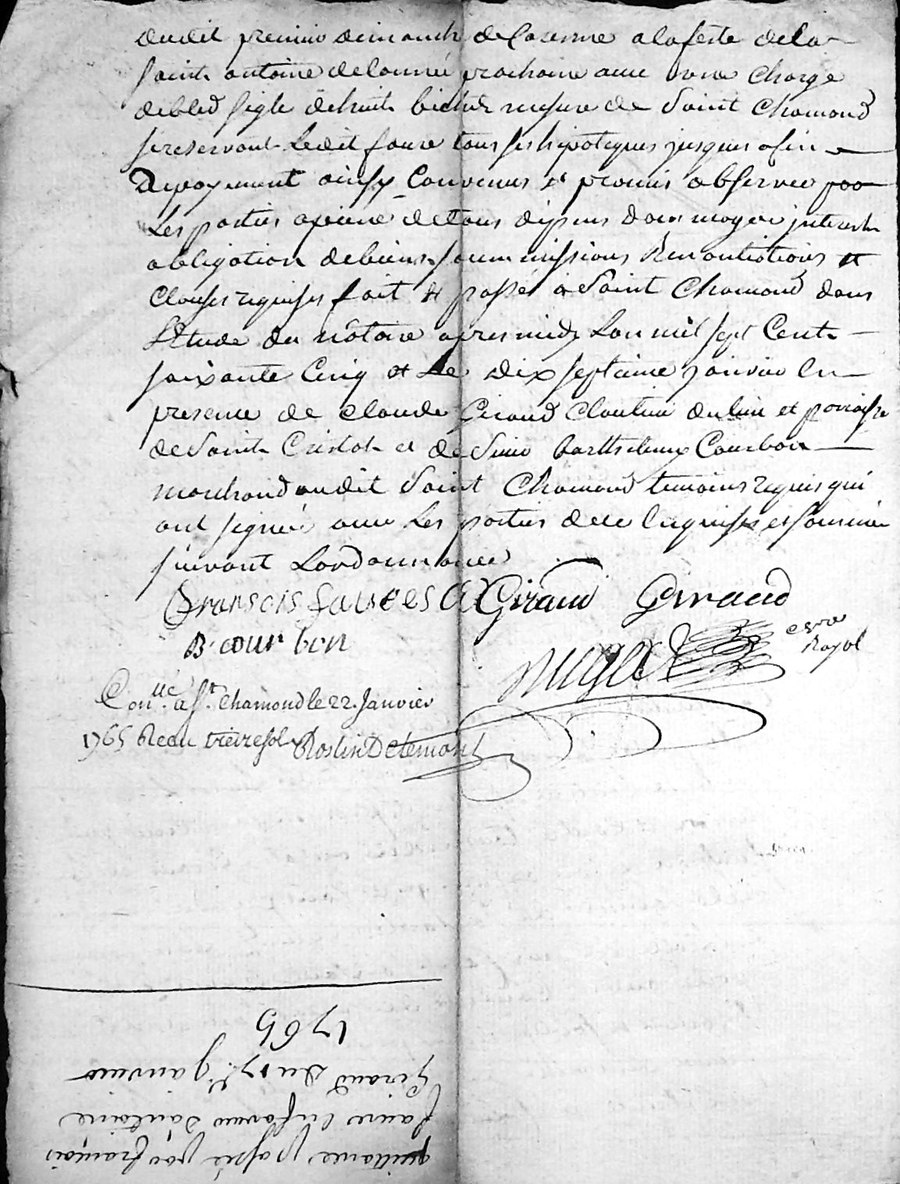 dudit premier dimanche de Caresme a la feste de la
Saint antoine de lannée prochaine avec une Charge
de bled seigle de huit bichets mesure de Saint Chamond
se reservant Ledit faure tous ses hipoteques jusques a fin
de payement ainsy Convenus et promis observer par
Les parties a peine de tous depens dommages interests
obligation de biens soummissions Renontiations et
Clauses requises fait et passé a Saint Chamond dans
l'Etude du notaire apres midy Lan mil sept Cent
soixante Cinq et Le dix septieme janvier En
presence de Claude Giraud Cloutier du lieu et paroisse
de Saint Cristot et de Sieur barthelemy Courbon
marchand audit Saint Chamond temoins requis qui
ont signé avec Les parties de ce Enquises et sommées
suivant Lordonnance
francois faure Giraud Geraud
B. courbon
nre
Royal
Con.lle a St. Chamond le 22. Janvier
1765 Receu treize sols
quittance passée par françois
faure en faveur d'antoine
Giraud du 17e. janvier
1765